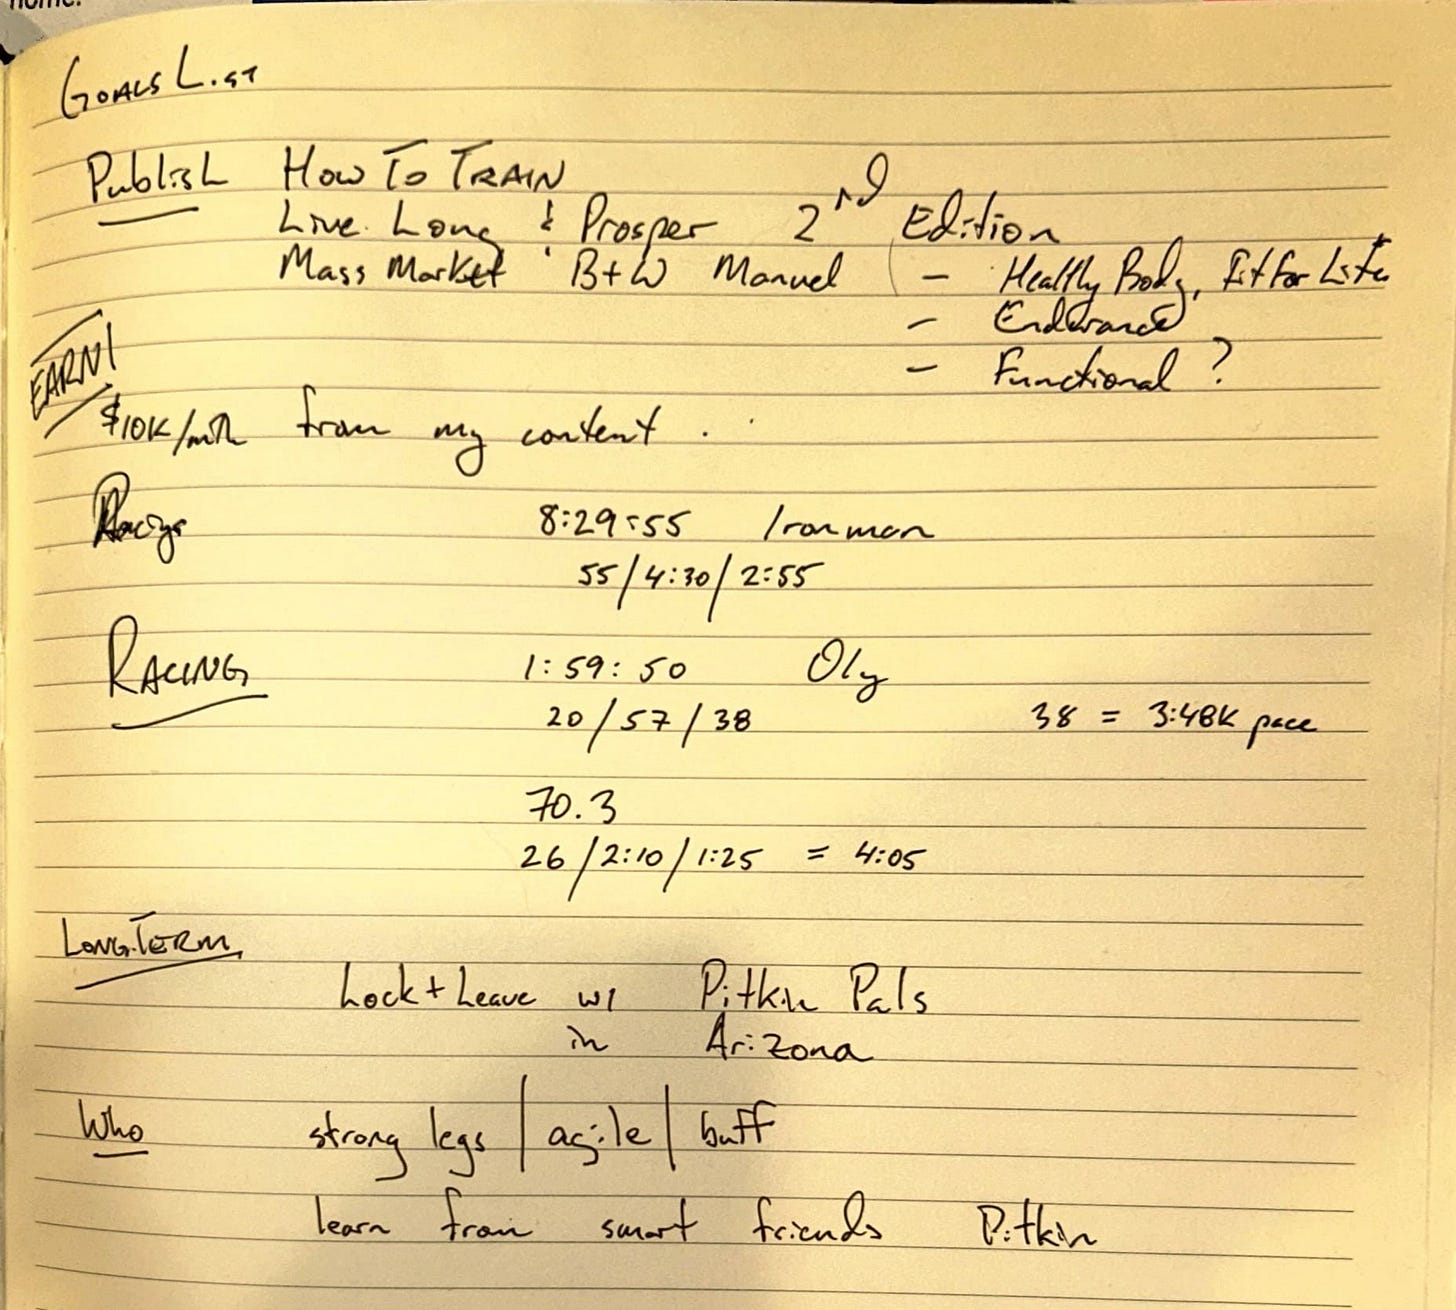 home.
GOALS LIST
Publish HOW TO TRAIN
Live Long & Prosper 2nd Edition
Mass Market B+W Manuel - Healthy Body, Fit For Life
- Endurance
- Functional ?
EARN!
$10K/mth from my content .
Racing 8:29:55 Ironman
55/4:30/2:55
RACING 1:59:50 Oly
20/57/38 38 = 3:48K pace
70.3
26/2:10/1:25 = 4:05
LONG-TERM
Lock + Leave w/ Pitkin Pals
in Arizona
Who strong legs | agile | buff
learn from smart friends Pitkin